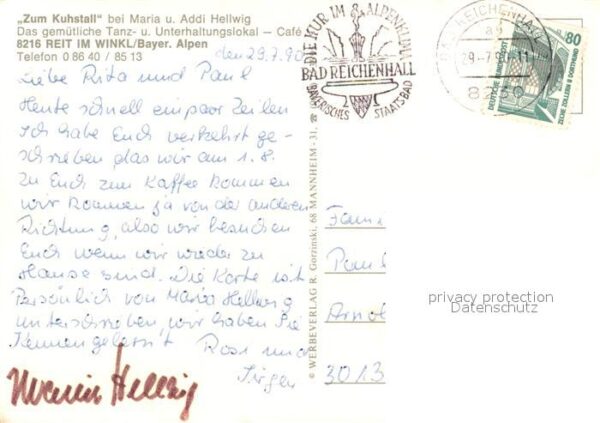 „Zum Kuhstall" bei Maria u. Addi Hellwig
Das gemütliche Tanz- u. Unterhaltungslokal – Café
8216 REIT IM WINKL/Bayer. Alpen
Telefon 0 86 40 / 85 13
den 29.7.90
Liebe Rita und Paul
Heute schnell ein paar Zeilen
Ich habe Euch verkehrt ge-
schrieben das wir am 1.8.
zu Euch zum Kaffee kommen
wir kommen ja von der anderen
Richtung, also wir besuchen
Euch wenn wir wieder zu
Hause sind. Die Karte ist
Persönlich von Maria Hellwig
unterschrieben, wir haben Sie
Kennengelernt Rosi und
Jürgen
Maria Hellwig
DIE KUR IM ALPENKLIMA
BAD REICHENHALL
BAYERISCHES STAATSBAD
BAD REICHENHALL
29.-7.90-11
8230
80
DEUTSCHE BUNDESPOST
ZECHE ZOLLERN II DORTMUND
© WERBEVERLAG R. Gorzinski, 68 MANNHEIM - 31,
Fami
Paul
Arno
3013
privacy protection
Datenschutz